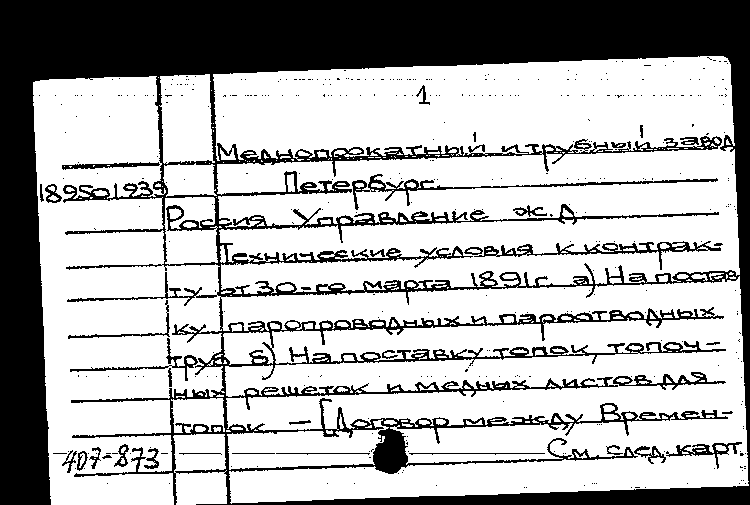 1
Меднопрокатный и трубный завод
1895о1939 Петербург.
Россия. Управление ж.д
Технические условия к контрак-
ту от 30-го марта 1891г. а) На постав
ку паропроводных и пароотводных
труб б) На поставку топок, топоч-
ных решеток и медных листов для
топок. — [Договор между Времен-
407-873 См. след. карт.